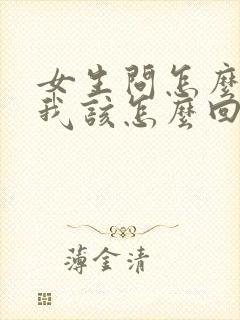 女生問怎麼
我該怎麼回
薄金清